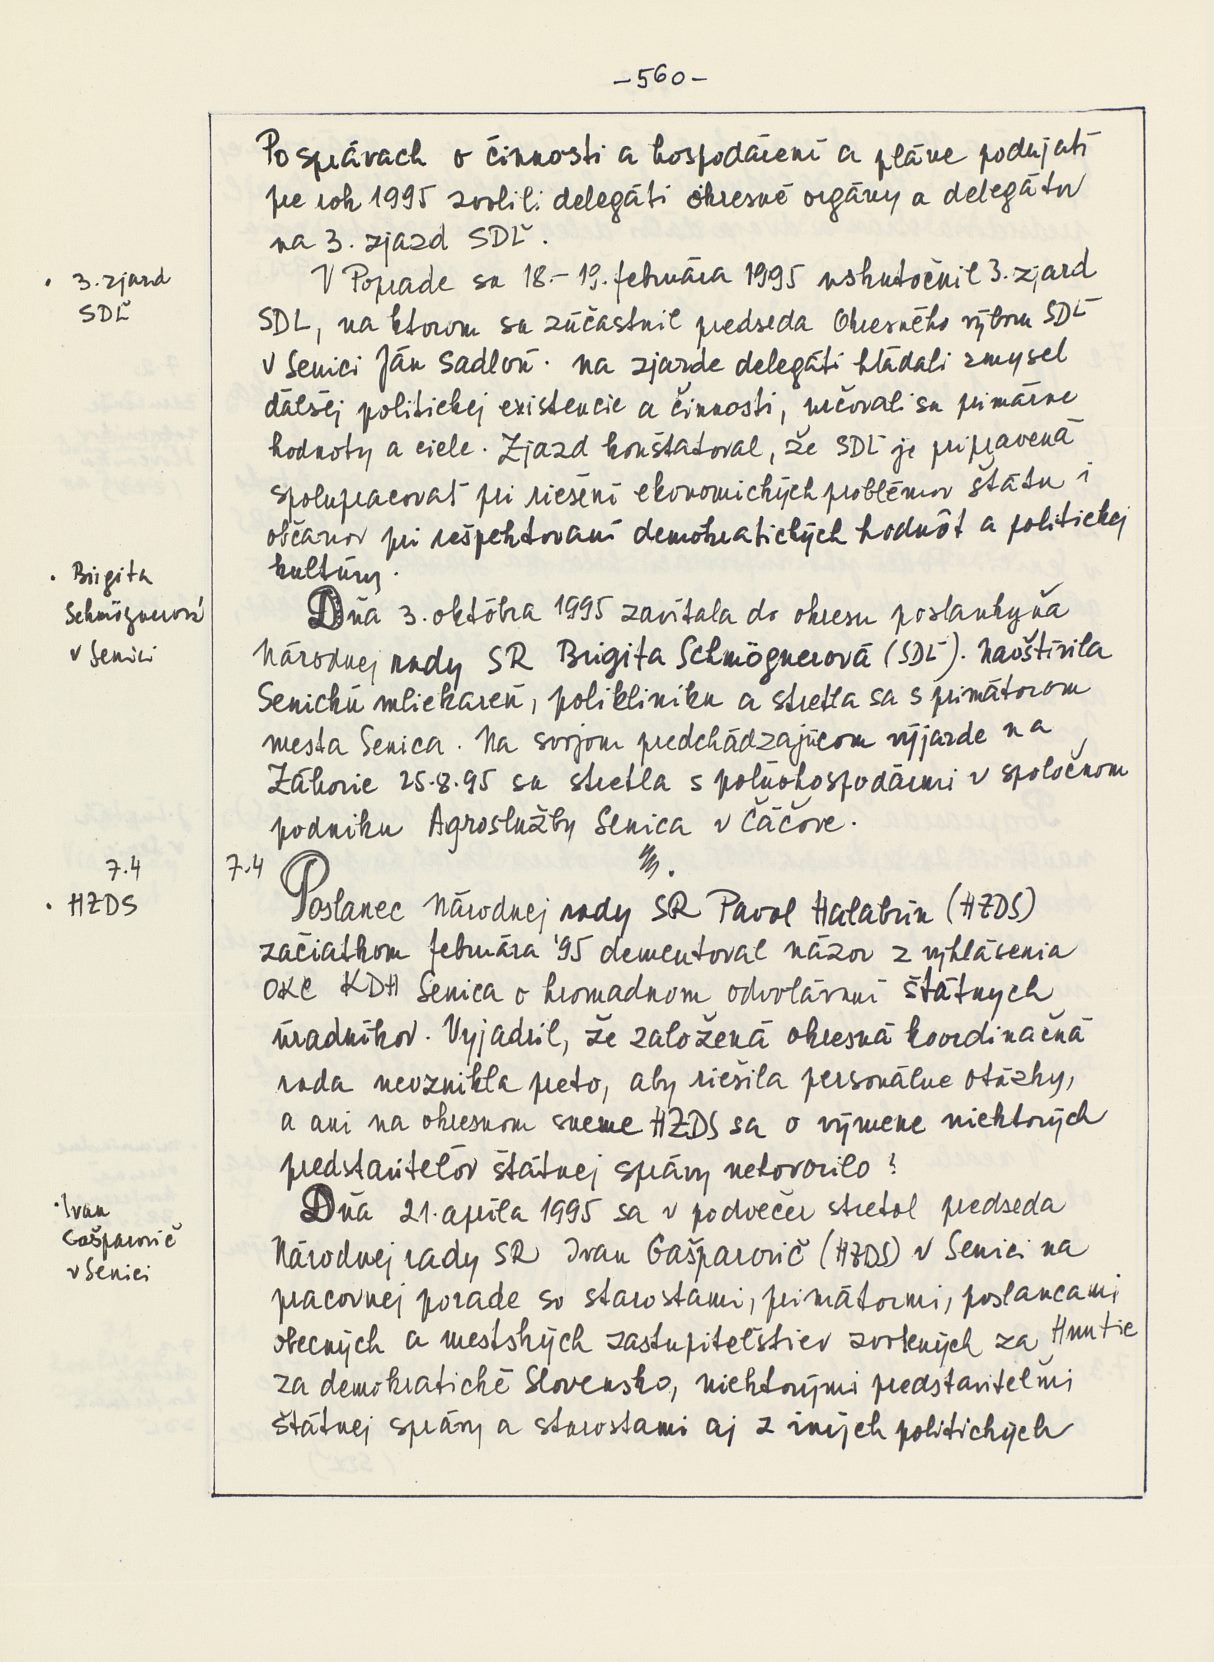 -560-
Po správach o činnosti a hospodárení a pláne podujatí
pre rok 1995 zvolili delegáti okresné orgány a delegátov
na 3. zjazd SDĽ.
• 3. zjazd
SDĽ
V Poprade sa 18.-19. februára 1995 uskutočnil 3. zjazd
SDL, na ktorom sa zúčastnil predseda Okresného výboru SDĽ
v Senici Ján Sadloň. Na zjazde delegáti hľadali zmysel
ďalšej politickej existencie a činnosti, určovali sa primárne
hodnoty a ciele. Zjazd konštatoval, že SDĽ je pripravená
spolupracovať pri riešení ekonomických problémov štátu i
občanov pri rešpektovaní demokratických hodnôt a politickej
kultúry.
• Brigita
Schmögnerová
v Senici
Dňa 3. októbra 1995 zavítala do okresu poslankyňa
Národnej rady SR Brigita Schmögnerová (SDĽ). Navštívila
Senickú mliekareň, polikliniku a stretla sa s primátorom
mesta Senica. Na svojom predchádzajúcom výjazde na
Záhorie 25.8.95 sa stretla s poľnohospodármi v spoločnom
podniku Agroslužby Senica v Čáčove.
7.4
• HZDS
7.4
Poslanec Národnej rady SR Pavol Halabrín (HZDS)
začiatkom februára '95 dementoval názor z vyhlásenia
OKC KDH Senica o hromadnom odvolávaní štátnych
úradníkov. Vyjadril, že založená okresná koordinačná
rada nevznikla preto, aby riešila personálne otázky,
a ani na okresnom sneme HZDS sa o výmene niektorých
predstaviteľov štátnej správy nehovorilo!
• Ivan
Gašparovič
v Senici
Dňa 21. apríla 1995 sa v podvečer stretol predseda
Národnej rady SR Ivan Gašparovič (HZDS) v Senici na
pracovnej porade so starostami, primátormi, poslancami
obecných a mestských zastupiteľstiev zvolených za Hnutie
za demokratické Slovensko, niektorými predstaviteľmi
štátnej správy a starostami aj z iných politických